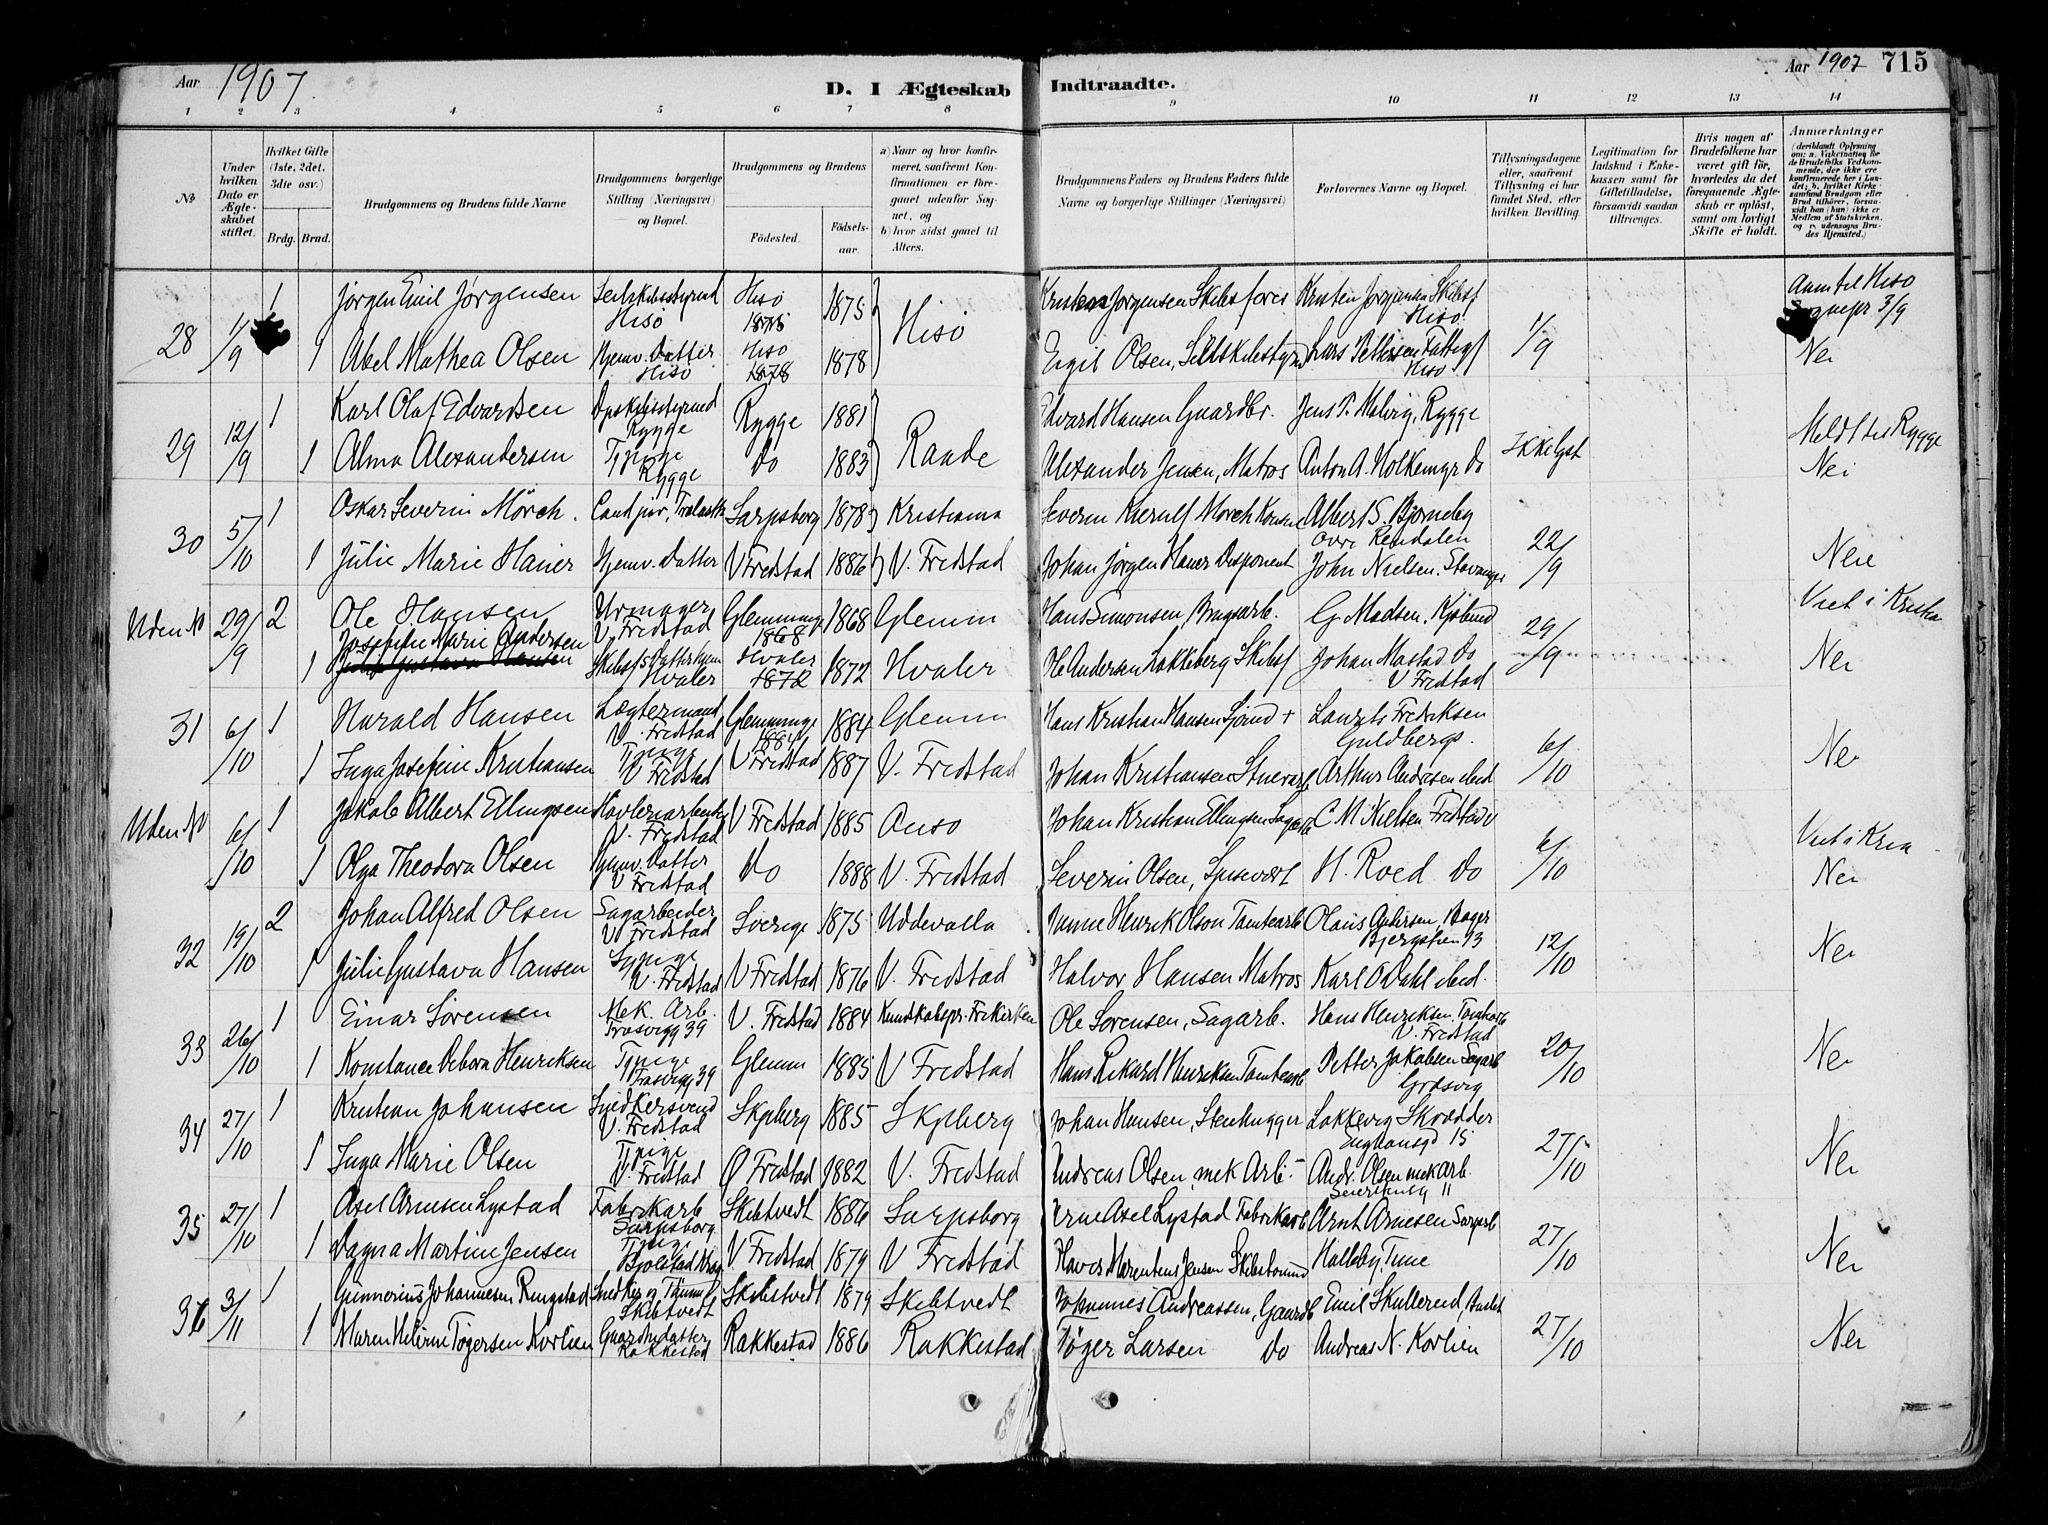 Aar 1907. D. I Ægteskab Indtraadte. Aar 1907 715
1 2 3 4 5 6 7 8 9 10 11 12 13 14
№
Under hvilken Dato er Ægteskabet stiftet.
Hvilket Gifte (1ste, 2det, 3die osv.)
Brdg. Brud.
Brudgommens og Brudens fulde Navne
Brudgommens borgerlige Stilling (Næringsvei) og Bopæl.
Brudgommens og Brudens
Fødested. Fødselsaar.
a) Naar og hvor konfirmeret, saafremt Konfirmationen er foregaaet udenfor Sognet, og
b) hvor sidst gaaet til Alters.
Brudgommens Faders og Brudens Faders fulde Navne og borgerlige Stillinger (Næringsvei)
Forlovernes Navne og Bopæl.
Tillysningsdagene eller, saafremt Tillysning ei har fundet Sted, efter hvilken Bevilling.
Legitimation for Indskud i Enkekassen samt for Giftetilladelse, forsaavidt saadan tiltrænges.
Hvis nogen af Brudefolkene har været gift før, hvorledes da det foregaaende Ægteskab er opløst, samt om lovligt Skifte er holdt.
Anmærkninger
28 1/9 1 Jørgen Emil Jørgensen Seilskibsstyrmd Hisø Hisø 1875 1875 Hisø Jørgensen Skibsfører Kristen Jørgensen Skibsf Hisø 1/9 Anm til Hisø Sognepr 3/9
1 Abel Mathea Olsen Hjemv. Datter Hisø Hisø 1878 1878 Olsen, Seilskibsstyrm Lars Hisø Nei
29 12/9 1 Karl Olaf Edvardsen Dpskibsstyrmd Rygge Rygge 1881 Raade Edvard Hansen Gaardbr. Jens P. Rygge Ikke lyst Meldt til Rygge
1 Alma Alexandersen Tjpige Rygge Do 1883 Alexander Jensen, Matros Anton A. Do Nei
30 5/10 1 Oskar Severin Mörch. Cand jur, Sarpsborg 1878 Kristiania Severin Kierulf Mörch Albert S. Bjørneby Øvre Rendalen 22/9
1 Julie Marie Hauer Hjemv. Datter V Fredstad 1886 V. Fredstad Johan Jørgen Hauer Disponent John Nielsen. Stavanger Nei
Uden № 29/9 2 Ole Hansen Urmager V. Fredstad Glemminge 1868 1868 Glemm Hans Simonsen, G. Madsen, 29/9 Viet i Kristia
1 Josefine Marie Andersen Hvaler Hvaler 1872 1872 Hvaler Ole Andersen Løkkeberg Skibsf Johan Mastad Do V Fredstad Nei
31 6/10 1 Harald Hansen Lægtermand V. Fredstad Glemminge 1884 1884 Glemm Hans Kristian Hansen Sjømd + Laurits Fredriksen Guldbergs. 6/10
1 Inga Josefine Kristiansen Tjpige V Fredstad V Fredstad 1887 V. Fredstad Johan Kristiansen Arthur Andresen ibid Nei
Uden № 6/10 1 Jakob Albert Ellingsen Høvleriarbeider V. Fredstad V Fredstad 1885 Onsø Johan Kristian Ellingsen Sagarb C M Nielsen, Fredstad 6/10 Viet i Kria
1 Olga Theodora Olsen Hjemv. Datter V Fredstad Do 1888 V. Fredstad Severin Olsen, Spisevært H. Roed Do Nei
32 19/10 2 Johan Alfred Olsen Sagarbeider V Fredstad Sverige 1875 Uddevalla Henrik Olson Tomtearb Olaus Andersen, Bager 12/10
1 Julie Gustava Hansen V. Fredstad V Fredstad 1876 V. Fredstad Halvor Hansen Matros Karl O Dahl ibid. Nei
33 26/10 1 Einar Sørensen Mek. Arb. Trosvigg 39 V. Fredstad 1884 Kundskabspr. Frikirken Ole Sørensen, Sagarb. Hans Henriksen. Tomtearb V. Fredstad 20/10
1 Konstance Debora Henriksen Tjpige Trosvigg 39 Glemm 1885 V Fredstad Hans Rikard Henriksen Tomtearb Petter Jakobsen Sagarb Nei
34 27/10 1 Kristian Johansen Snedkersvend V. Fredstad Skjeberg 1885 Skjeberg Johan Hansen, Stenhugger Løkkevig Skrædder 15 27/10
1 Inga Marie Olsen Tjpige V. Fredstad Ø Fredstad 1882 V. Fredstad Andreas Olsen, mek Arb. Andr. Olsen mek Arb. 11 Nei
35 27/10 1 Axel Arnesen Lystad Fabrikarb Sarpsborg Skibtvedt 1886 Sarpsborg Arne Axel Lystad Fabrikarb Arnt Arnesen Sagarb 27/10
1 Dagna Martine Jensen Tjpige V Fredstad 1879 V Fredstad Jensen Skibstømmd Halleby, Tune Nei
36 3/11 1 Gunnerius Johannesen Ringstad Snedker og Tømm Skibtvedt Skibtvedt 1879 Skibtvedt Johannes Andreassen, Gaardb Emil Skullerud, 27/10
1 Maren Helene Tøgersen Korlien Gaardbrdatter Rakkestad Rakkestad 1886 Rakkestad Tøger Larsen Do Andreas N. Korlien Nei